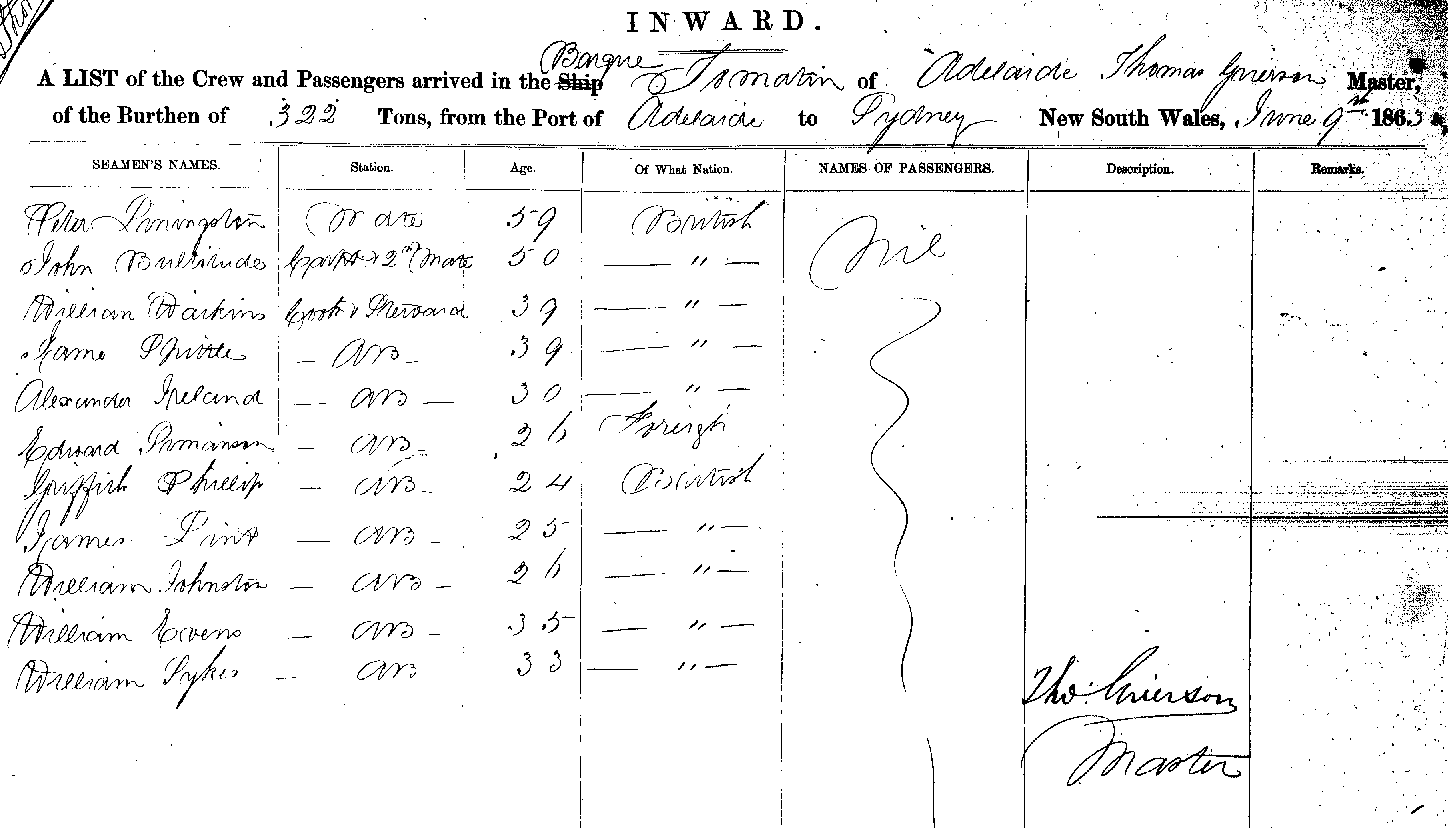 INWARD.
Barque
A LIST of the Crew and Passengers arrived in the Ship Tomatin of Adelaide Thomas Grierson Master,
of the Burthen of 322 Tons, from the Port of Adelaide to Sydney New South Wales, June 9th 1863
SEAMEN'S NAMES. Station. Age. Of What Nation. NAMES OF PASSENGERS. Description. Remarks.
Peter Mate 59 British Nil
John Bultitude Carptr & 2nd Mate 50 — " —
William Watkins Cook & Steward 39 — " —
James — AB — 39 — " —
Alexander Ireland — AB — 30 — " —
Edward — AB — 26 Foreign
Griffith Phillip — AB — 24 British
James — AB — 25 — " —
William Johnston — AB — 26 — " —
William Evens — AB — 35 — " —
William Sykes — AB 33 — " —
Tho. Grierson
Master